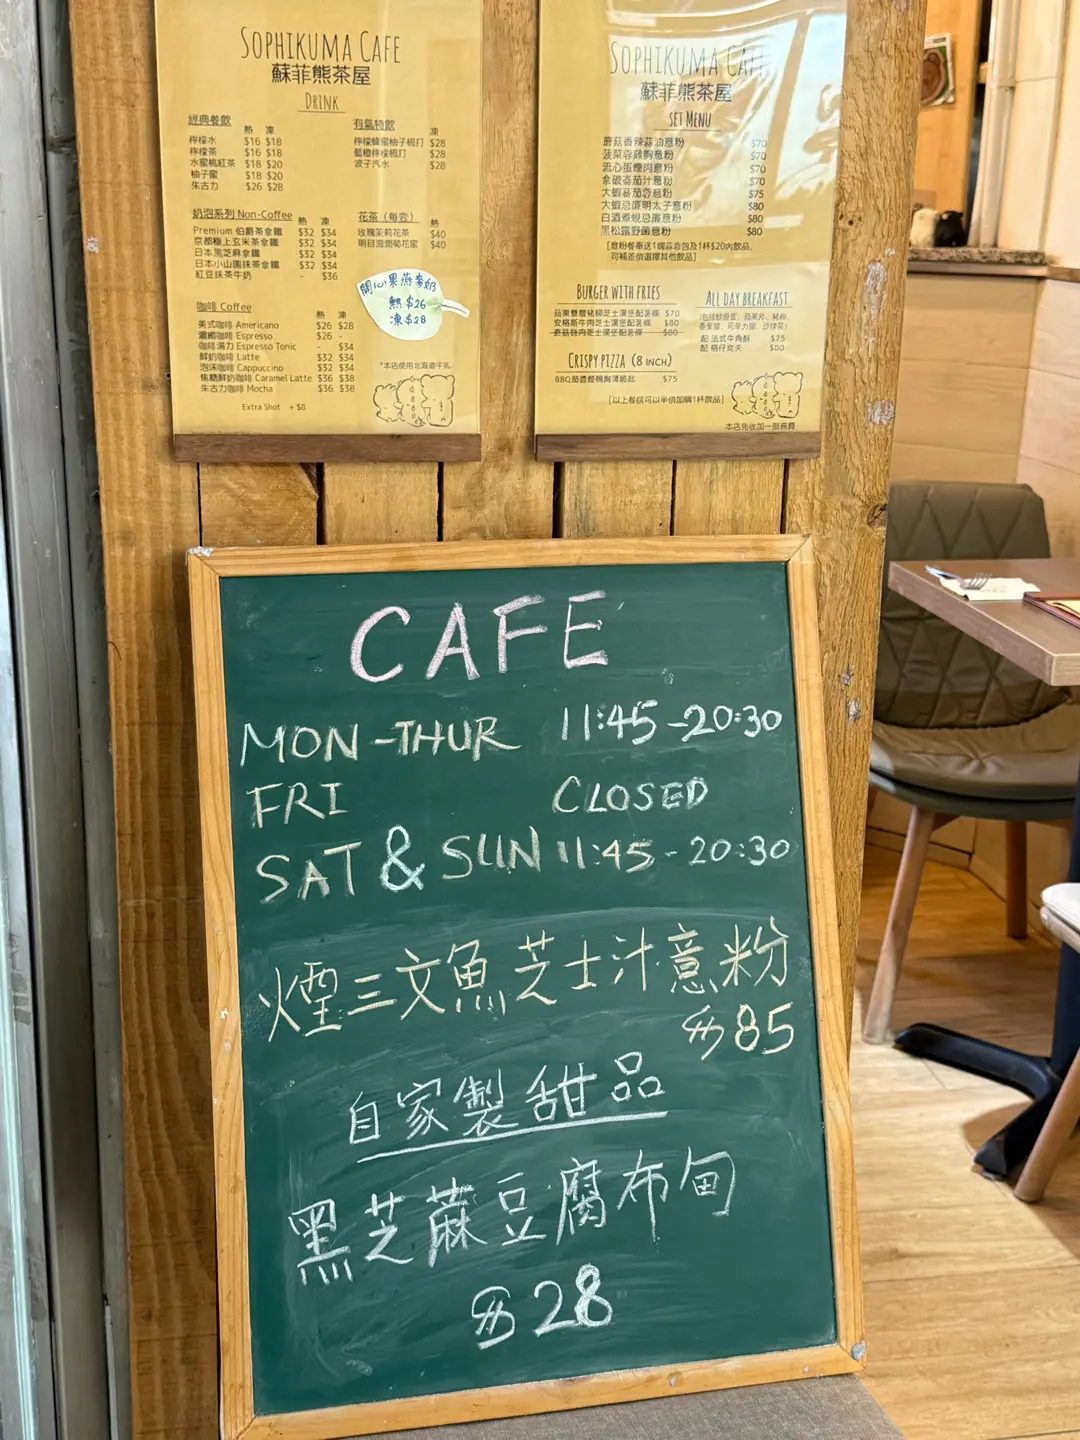 SOPHIKUMA CAFE
蘇菲熊茶屋
DRINK
經典餐飲 熱 凍
檸檬水 $16 $18
檸檬茶 $16 $18
水蜜桃紅茶 $18 $20
柚子蜜 $18 $20
朱古力 $26 $28
有氣特飲 凍
檸檬蜂蜜柚子梳打 $28
葡橙檸檬梳打 $28
波子汽水 $28
奶泡系列 Non-Coffee 熱 凍
Premium 伯爵茶拿鐵 $32 $34
京都極上玄米茶拿鐵 $32 $34
日本黑芝麻拿鐵 $32 $34
日本小山園抹茶拿鐵 $32 $34
紅豆抹茶牛奶 - $36
花茶（每壺） 熱
玫瑰茉莉花茶 $40
明目滋潤菊花蜜 $40
開心果燕麥奶
熱 $26
凍 $28
咖啡 Coffee
美式咖啡 Americano $26 $28
濃縮咖啡 Espresso $26 -
咖啡湯力 Espresso Tonic - $34
鮮奶咖啡 Latte $32 $34
泡沫咖啡 Cappuccino $32 $34
焦糖鮮奶咖啡 Caramel Latte $36 $38
朱古力咖啡 Mocha $36 $38
Extra Shot +$8
*本店使用北海道牛乳
SOPHIKUMA CAFE
蘇菲熊茶屋
SET MENU
蘑菇香辣蒜油意粉 $70
菠菜蓉雞胸意粉 $70
流心蛋煙肉意粉 $70
拿破崙茄汁意粉 $70
大蝦蕃茄蓉意粉 $75
大蝦忌廉明太子意粉 $80
白酒煮蜆忌廉意粉 $80
黑松露野菌意粉 $80
[意粉餐奉送1塊蒜蓉包及1杯$20內飲品,
可補差價選擇其他飲品]
BURGER WITH FRIES
蘋果雙層豬柳芝士漢堡配薯條 $70
安格斯牛肉芝士漢堡配薯條 $80
蘑菇雞肉芝士漢堡配薯條 $80
CRISPY PIZZA (8 INCH)
$75
ALL DAY BREAKFAST
配 法式牛角酥 $75
配 格仔窩夫 $80
[以上餐飲可以半價加購1杯飲品]
本店免收加一服務費
CAFE
MON-THUR 11:45-20:30
FRI CLOSED
SAT & SUN 11:45-20:30
煙三文魚芝士汁意粉
$85
自家製甜品
黑芝蔴豆腐布甸
$28